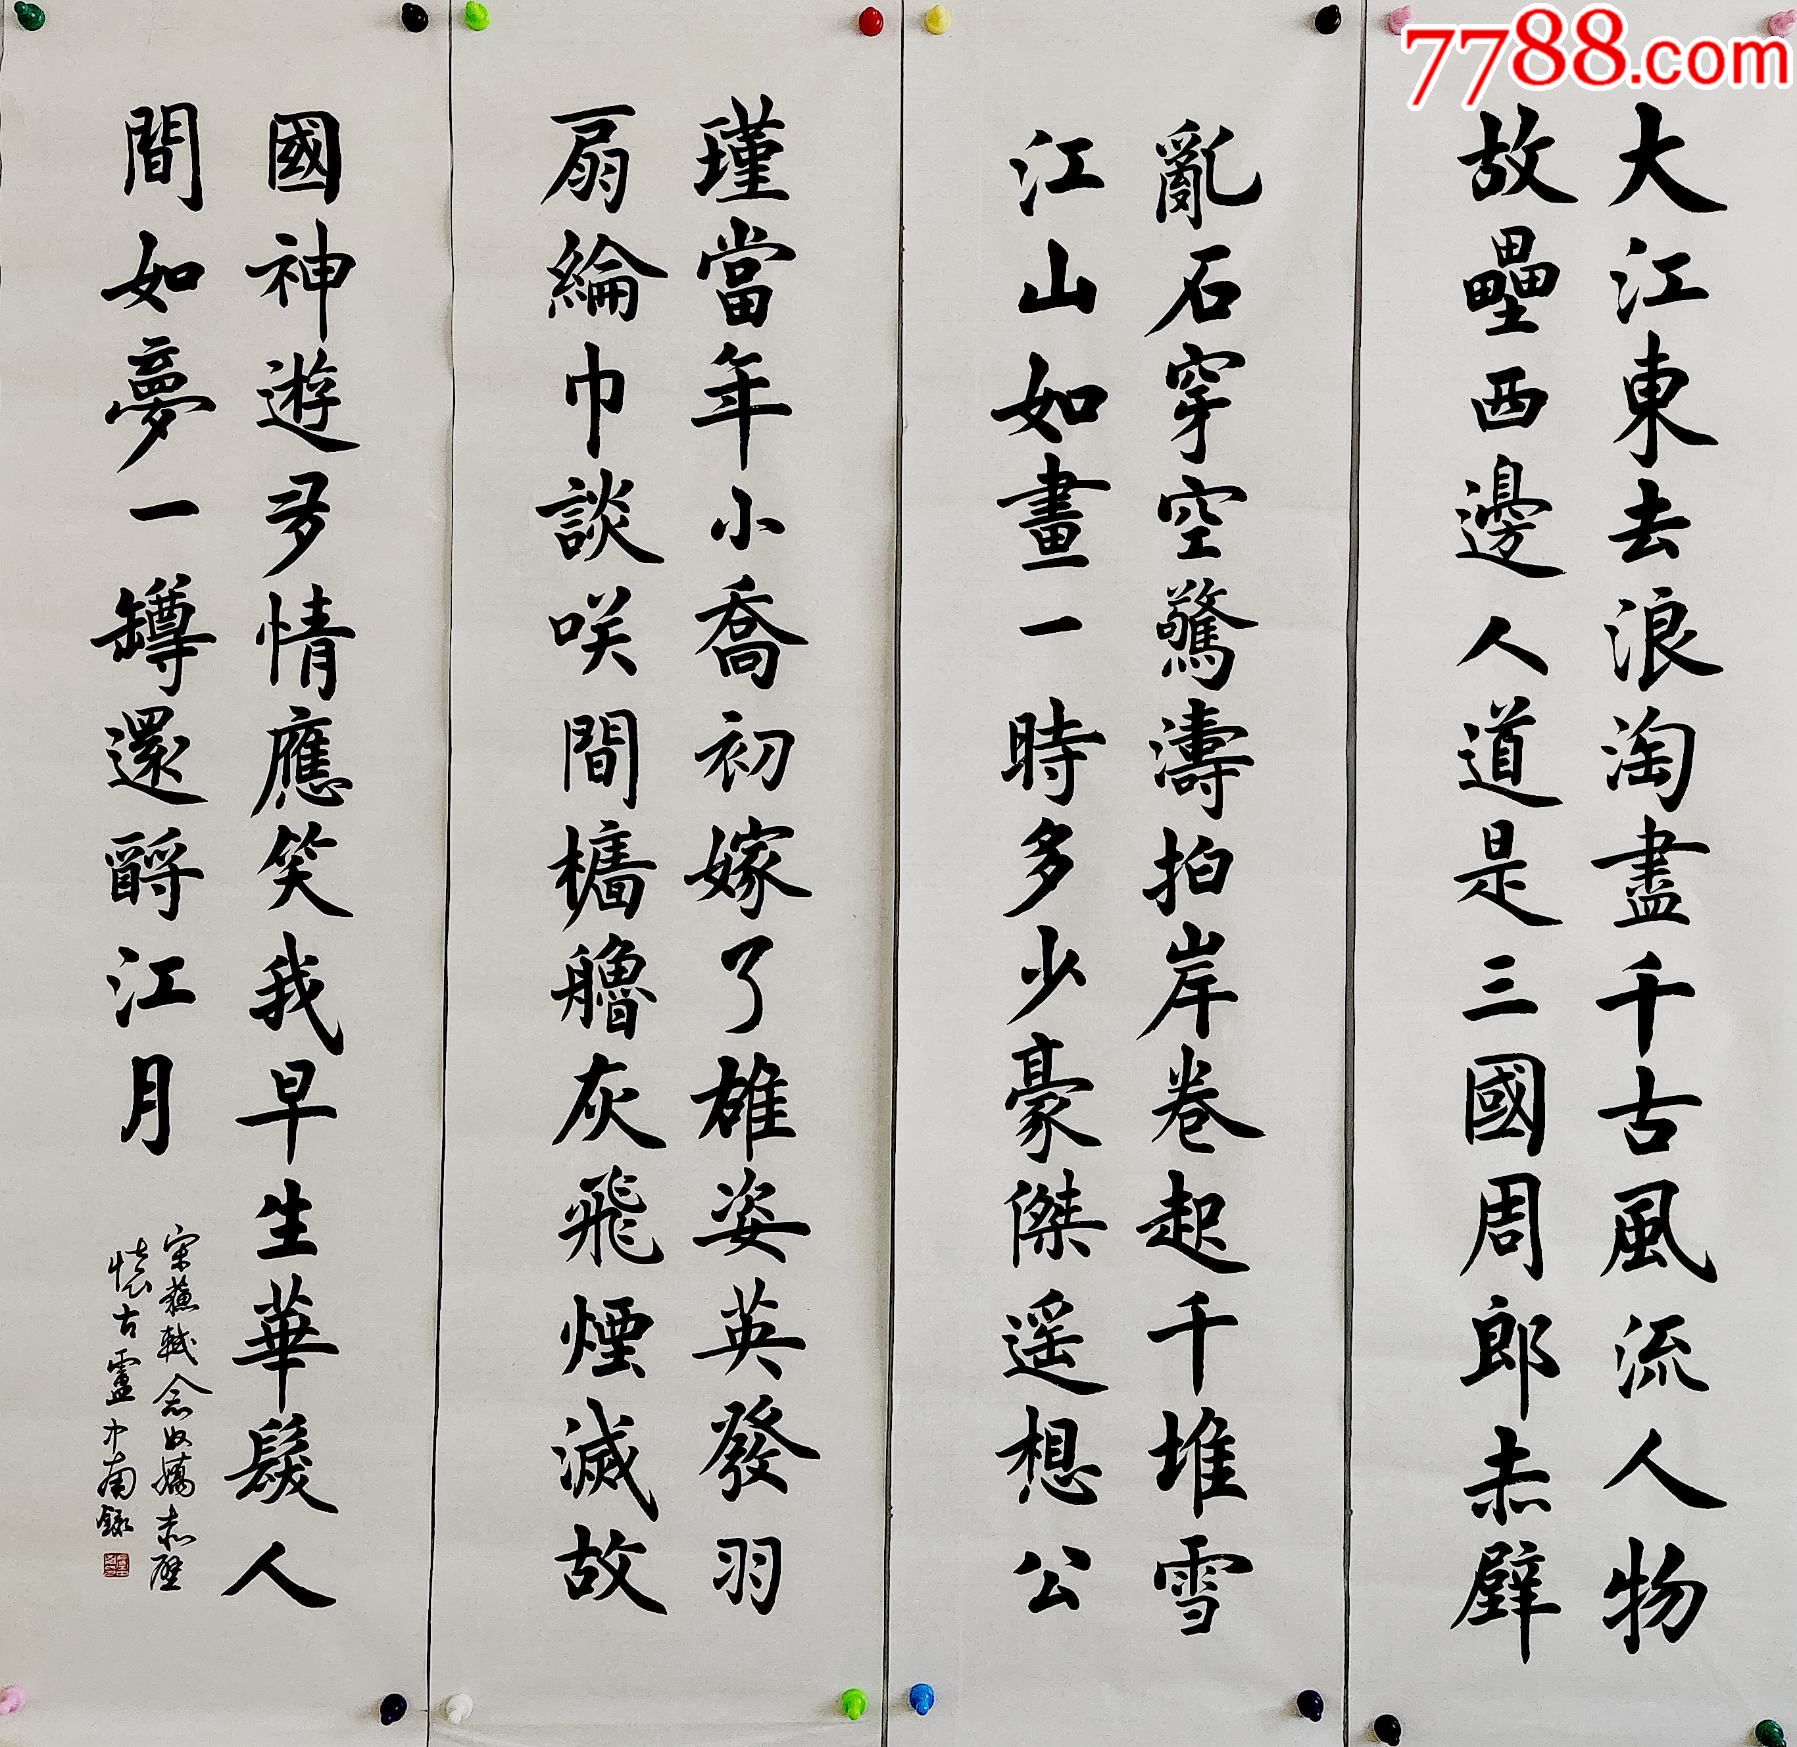 7788.com
大江東去浪淘盡千古風流人物
故壘西邊人道是三國周郎赤壁
亂石穿空驚濤拍岸卷起千堆雪
江山如畫一時多少豪傑遥想公
瑾當年小喬初嫁了雄姿英發羽
扇綸巾談咲間檣艣灰飛煙滅故
國神遊多情應笑我早生華髮人
間如夢一罇還酹江月
宋蘇軾念奴嬌赤壁
懷古盧中南錄